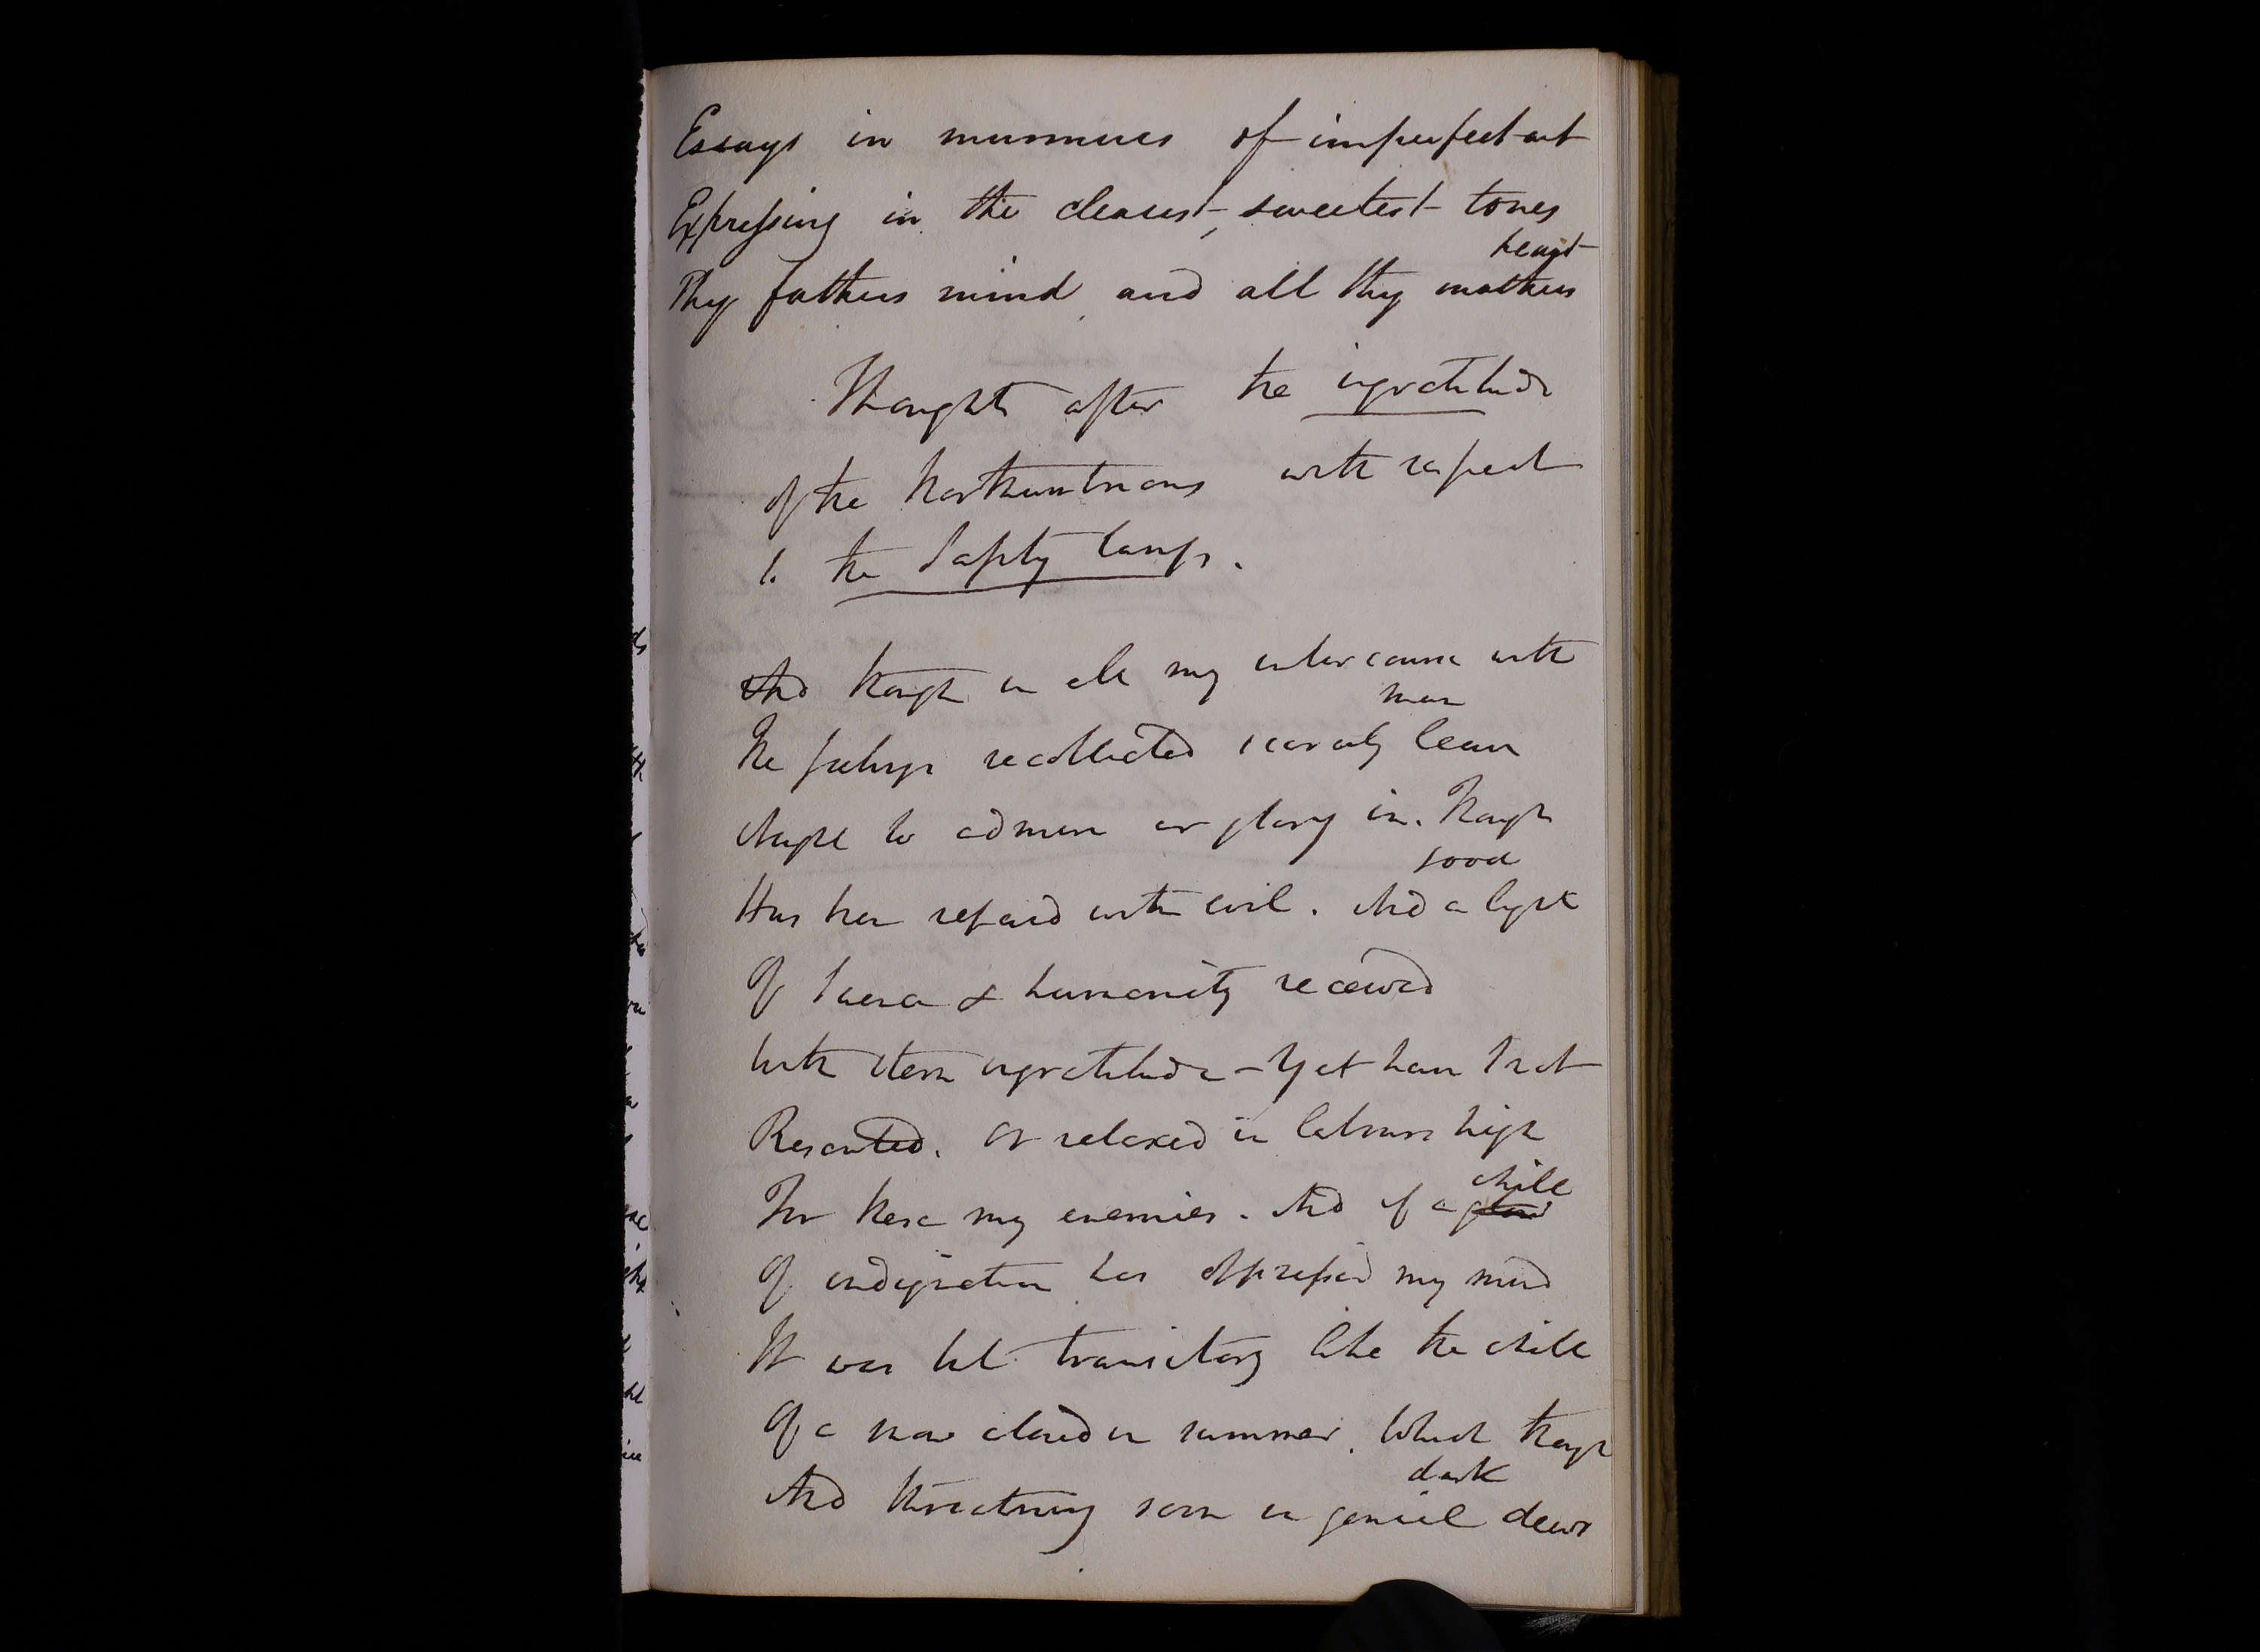 Essays in murmurs of imperfect art
Expressing in the clearest, sweetest tones
heart
Thy fathers mind and all thy mothers
Thoughts after the ingratitude
of the Northumbrians with respect
to the Safety lamp.
And though in all my intercourse with
man
The feelings recollected scarcely leave
Aught to admire or glory in. Though
good
Has been repaid with evil. And a light
Of science & humanity received
With stern ingratitude – Yet have I not
Resented. Or relaxed in labours high
For these my enemies. And if a cloud
chill
Of indignation has oppressed my mind
It was but transitory like the chill
Of a snow cloud in summer. Which though
dark
And threatning soon in genial dews